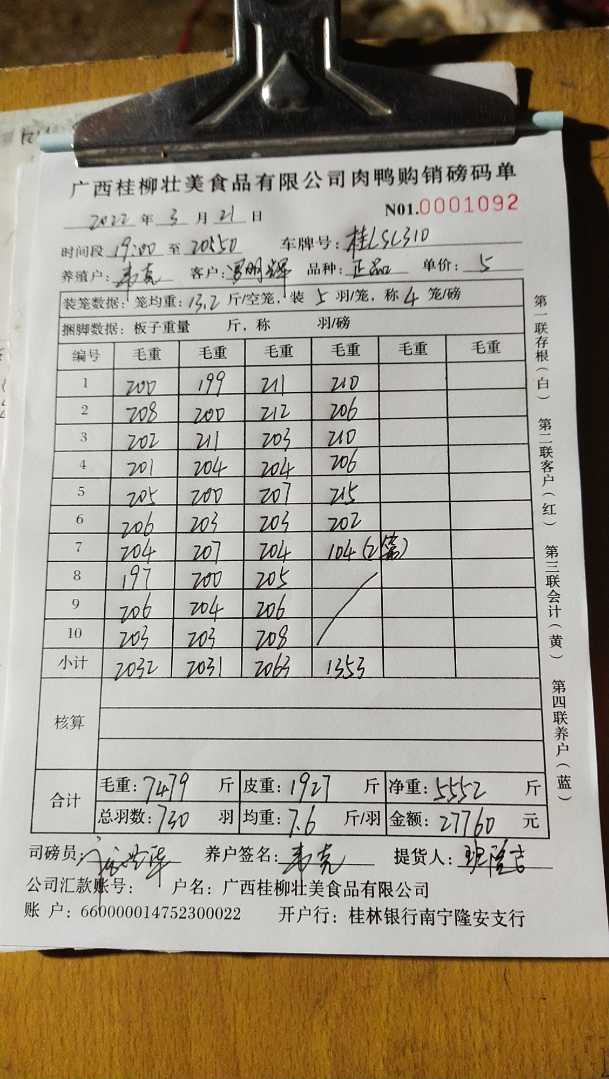 广西桂柳壮美食品有限公司肉鸭购销磅码单
2022 年 3 月 21 日 N01.0001092
时间段 19:00 至 20:50 车牌号: 桂LSL310
养殖户: 韦克 客户: 明辉 品种: 正品 单价: 5
装笼数据: 笼均重: 13.2 斤/空笼, 装 5 羽/笼, 称 4 笼/磅
捆脚数据: 板子重量 斤, 称 羽/磅
编号 毛重 毛重 毛重 毛重 毛重 毛重
1 200 199 211 210
2 208 200 212 206
3 202 211 203 210
4 201 204 204 206
5 205 200 207 215
6 206 203 203 202
7 204 207 204 104 (2笼)
8 197 200 205
9 206 204 206
10 203 203 208
小计 2032 2031 2063 1353
核算
合计 毛重: 7479 斤 皮重: 1927 斤 净重: 5552 斤
总羽数: 730 羽 均重: 7.6 斤/羽 金额: 27760 元
司磅员: 养户签名: 韦克 提货人:
公司汇款账号: 户名: 广西桂柳壮美食品有限公司
账 户: 660000014752300022 开户行: 桂林银行南宁隆安支行
第一联存根(白) 第二联客户(红) 第三联会计(黄) 第四联养户(蓝)